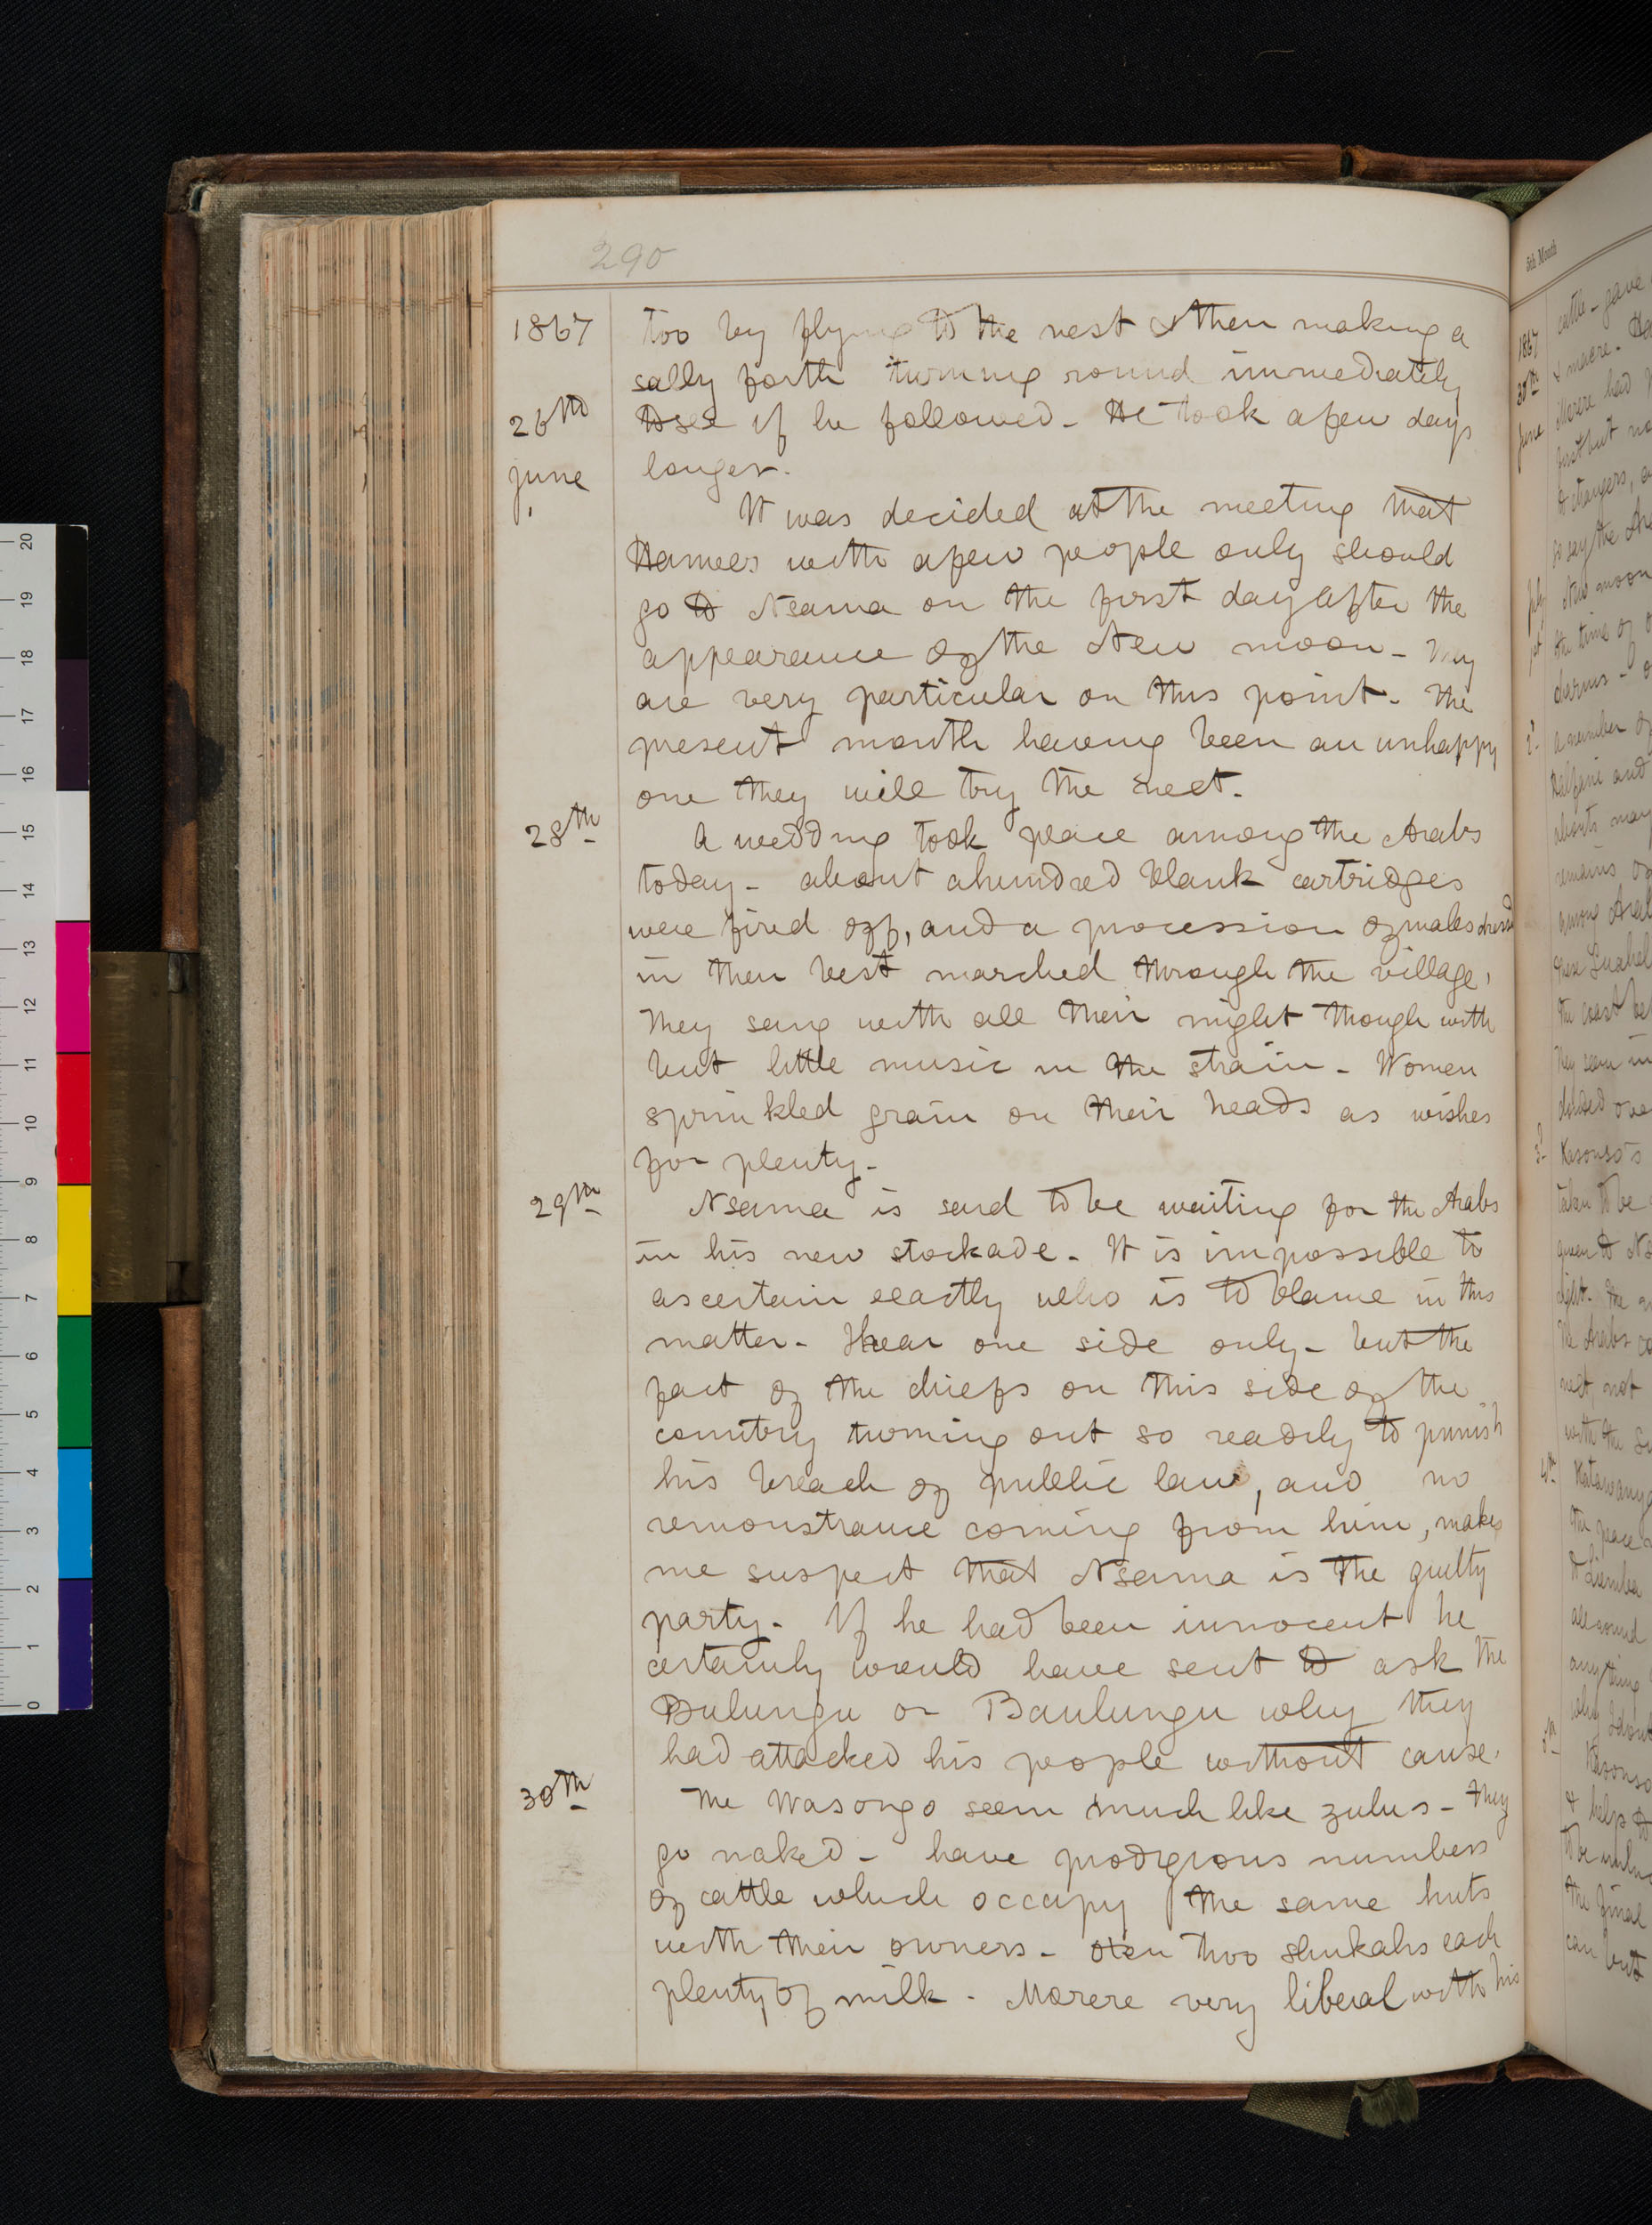 290
1867 too by flying to the nest & then making a
sally forth turning round immediately
26th to see if he followed - He took a few days
June longer.
It was decided at the meeting that
Hamees with a few people only should
go to Nsama on the first day after the
appearance of the New moon - They
are very particular on this point - The
present month having been an unhappy
one they will try the next.
28th A wedding took place among the Arabs
today - about a hundred blank cartridges
were fired off, and a procession of males dressed
in their best marched through the village,
They sang with all their might though with
but little music in the strain - Women
sprinkled grain on their heads as wishes
for plenty -
29th Nsama is said to be waiting for the Arabs
in his new stockade - It is impossible to
ascertain exactly who is to blame in this
matter - I hear one side only - but the
fact of the chiefs on this side of the
country turning out so readily to punish
his breach of public law, and no
remonstrance coming from him, makes
me suspect that Nsama is the guilty
party - If he had been innocent he
certainly would have sent to ask the
Bulungu or Baulungu why they
had attacked his people without cause.
30th The Wasongo seem much like zulus - they
go naked - have prodigious numbers
of cattle which occupy the same huts
with their owners - oxen two shukahs each
plenty of milk - Merere very liberal with his
5th Month
1867 cattle - gave
30th
June Merere had
but no
to strangers,
so say the
July New moon
1st the time of
charms -
2d a number of
and
may
remains of
among Arab
the coast
They seem in
over
3d Kasonso's
taken to be
given to
the Arabs
next, not
with the
4th
the peace
to Liemba
all round
anything
why
5th Kasonso
& helps to
to be
the final
can but